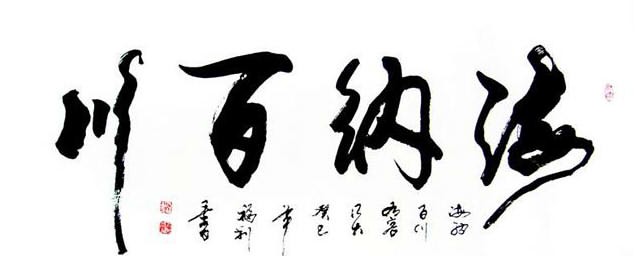 海纳百川
海纳百川有容乃大癸巳年福利书